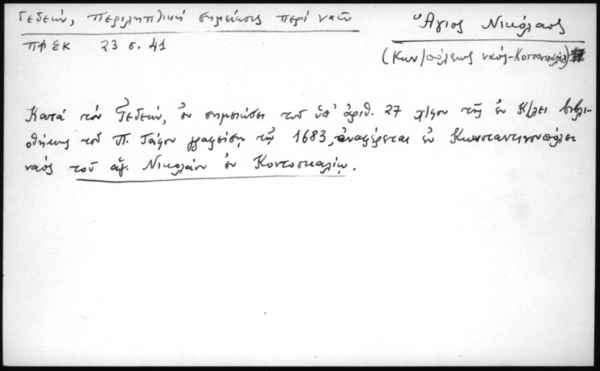 Γεδεών, Περιληπτική σημείωσις περί ναῶν
ΠΦΣΚ 23 σ. 41
Ἅγιος Νικόλαος
(Κων/πόλεως ναός-Κοντοσκάλιο)
Κατά τόν Γεδεών, ἐν σημειώσει τοῦ ὑπ' ἀριθ. 27 χ/φου τῆς ἐν Κ/λει βιβλι-
οθήκης τοῦ Π. Τάφου γραφείσῃ τῷ 1683, ἀναφέρεται ἐν Κωνσταντινουπόλει
ναός τοῦ ἁγ. Νικολάου ἐν Κοντοσκαλίῳ.